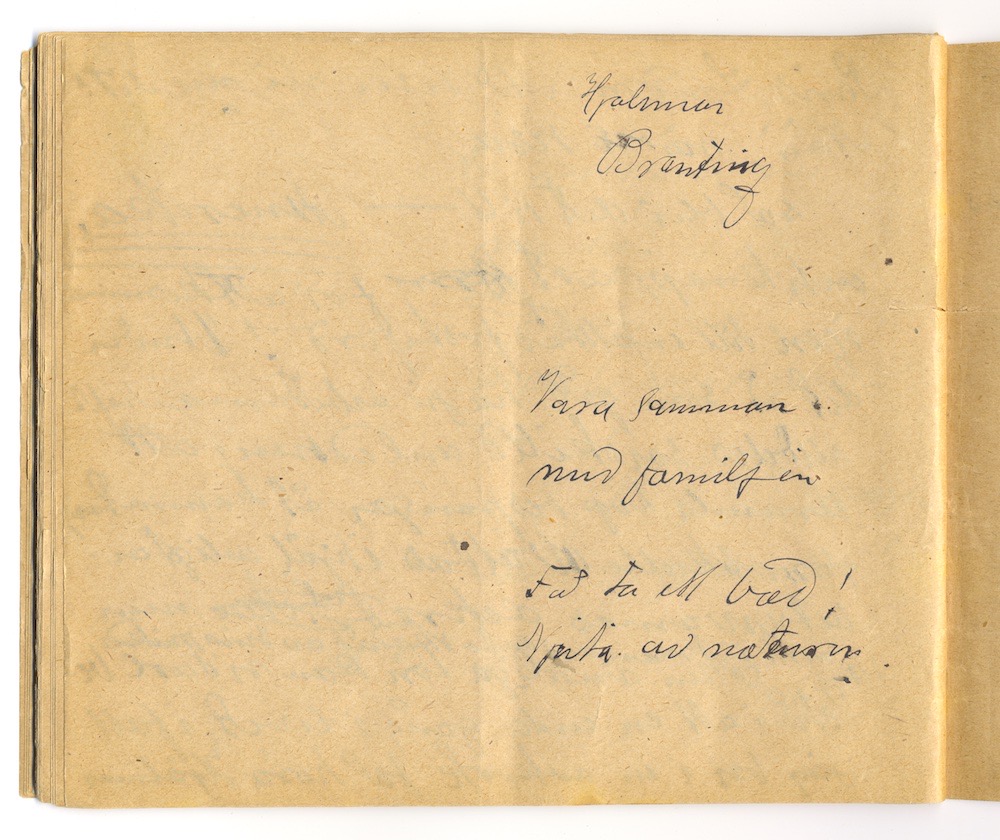 Hjalmar
Branting
Vara samman
med familjen
Få ta ett bad!
Njuta av naturen.